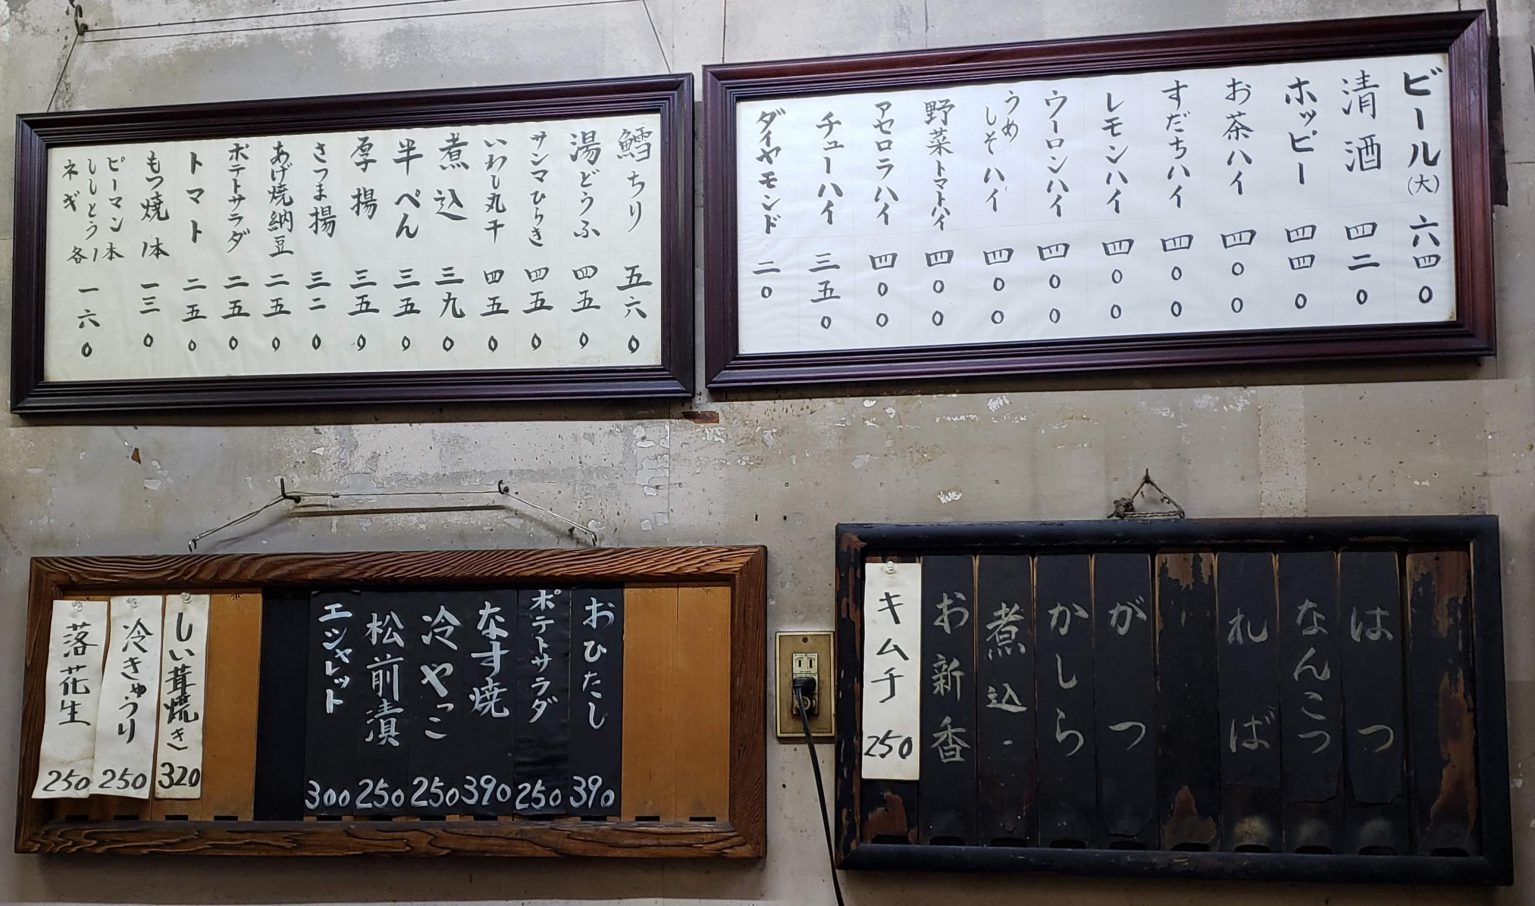 ビール(大) 六四0
清酒 四二0
ホッピー 四四0
お茶ハイ 四00
すだちハイ 四00
レモンハイ 四00
ウーロンハイ 四00
うめしそハイ 四00
野菜トマトハイ 四00
アセロラハイ 四00
チューハイ 三五0
ダイヤモンド 二0
鱈ちり 五六0
湯どうふ 四五0
サンマひらき 四五0
いわし丸干 四五0
煮込 三九0
半ぺん 三五0
厚揚 三五0
さつま揚 三二0
あげ焼納豆 二五0
ポテトサラダ 二五0
トマト 二五0
もつ焼1本 一三0
ピーマン1本
ししとう1
ネギ 各 一六0
はつ
なんこつ
れば
がつ
かしら
煮込
お新香
キムチ 250
おひたし 390
ポテトサラダ 250
なす焼 390
冷やっこ 250
松前漬 250
エシャレット 300
しい茸焼き 320
冷きゅうり 250
落花生 250